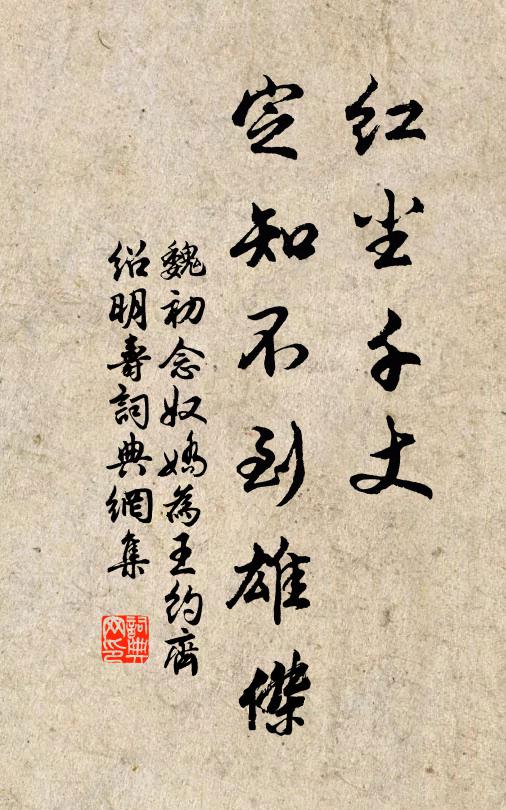 红尘千丈
定知不到雄傑
魏初念奴嬌為王約齋
绍明壽詞典網集
詞典網印